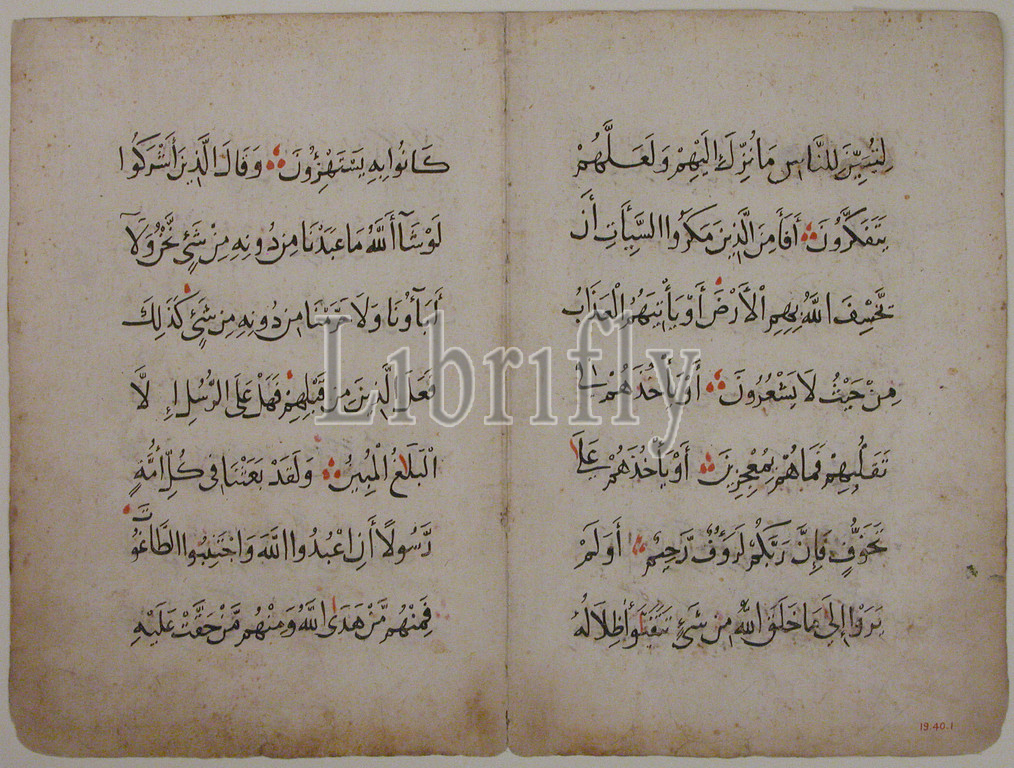 لِتُبَيِّنَ لِلنَّاسِ مَا نُزِّلَ إِلَيْهِمْ وَلَعَلَّهُمْ
يَتَفَكَّرُونَ أَفَأَمِنَ الَّذِينَ مَكَرُوا السَّيِّأَتِ أَنْ
يَّخْسِفَ اللَّهُ بِهِمِ الْأَرْضَ أَوْ يَأْتِيَهُمُ الْعَذَابُ
مِنْ حَيْثُ لَا يَشْعُرُونَ أَوْ يَأْخُذَهُمْ فِي
تَقَلُّبِهِمْ فَمَا هُمْ بِمُعْجِزِينَ أَوْ يَأْخُذَهُمْ عَلَى
تَخَوُّفٍ فَإِنَّ رَبَّكُمْ لَرَؤُفٌ رَّحِيمٌ أَوَلَمْ
يَرَوْا إِلَى مَا خَلَقَ اللَّهُ مِنْ شَيْءٍ يَتَفَيَّؤُا ظِلَالُهُ
كَانُوا بِهِ يَسْتَهْزِؤُنَ وَقَالَ الَّذِينَ أَشْرَكُوا
لَوْ شَآءَ اللَّهُ مَا عَبَدْنَا مِنْ دُونِهِ مِنْ شَيْءٍ نَّحْنُ وَلَآ
أَبَآؤُنَا وَلَا حَرَّمْنَا مِنْ دُونِهِ مِنْ شَيْءٍ كَذَلِكَ
فَعَلَ الَّذِينَ مِنْ قَبْلِهِمْ فَهَلْ عَلَى الرُّسُلِ إِلَّا
الْبَلَاغُ الْمُبِينُ وَلَقَدْ بَعَثْنَا فِي كُلِّ أُمَّةٍ
رَّسُولًا أَنِ اعْبُدُوا اللَّهَ وَاجْتَنِبُوا الطَّاغُوتَ
فَمِنْهُمْ مَّنْ هَدَى اللَّهُ وَمِنْهُمْ مَّنْ حَقَّتْ عَلَيْهِ
Librifly
19.40.1